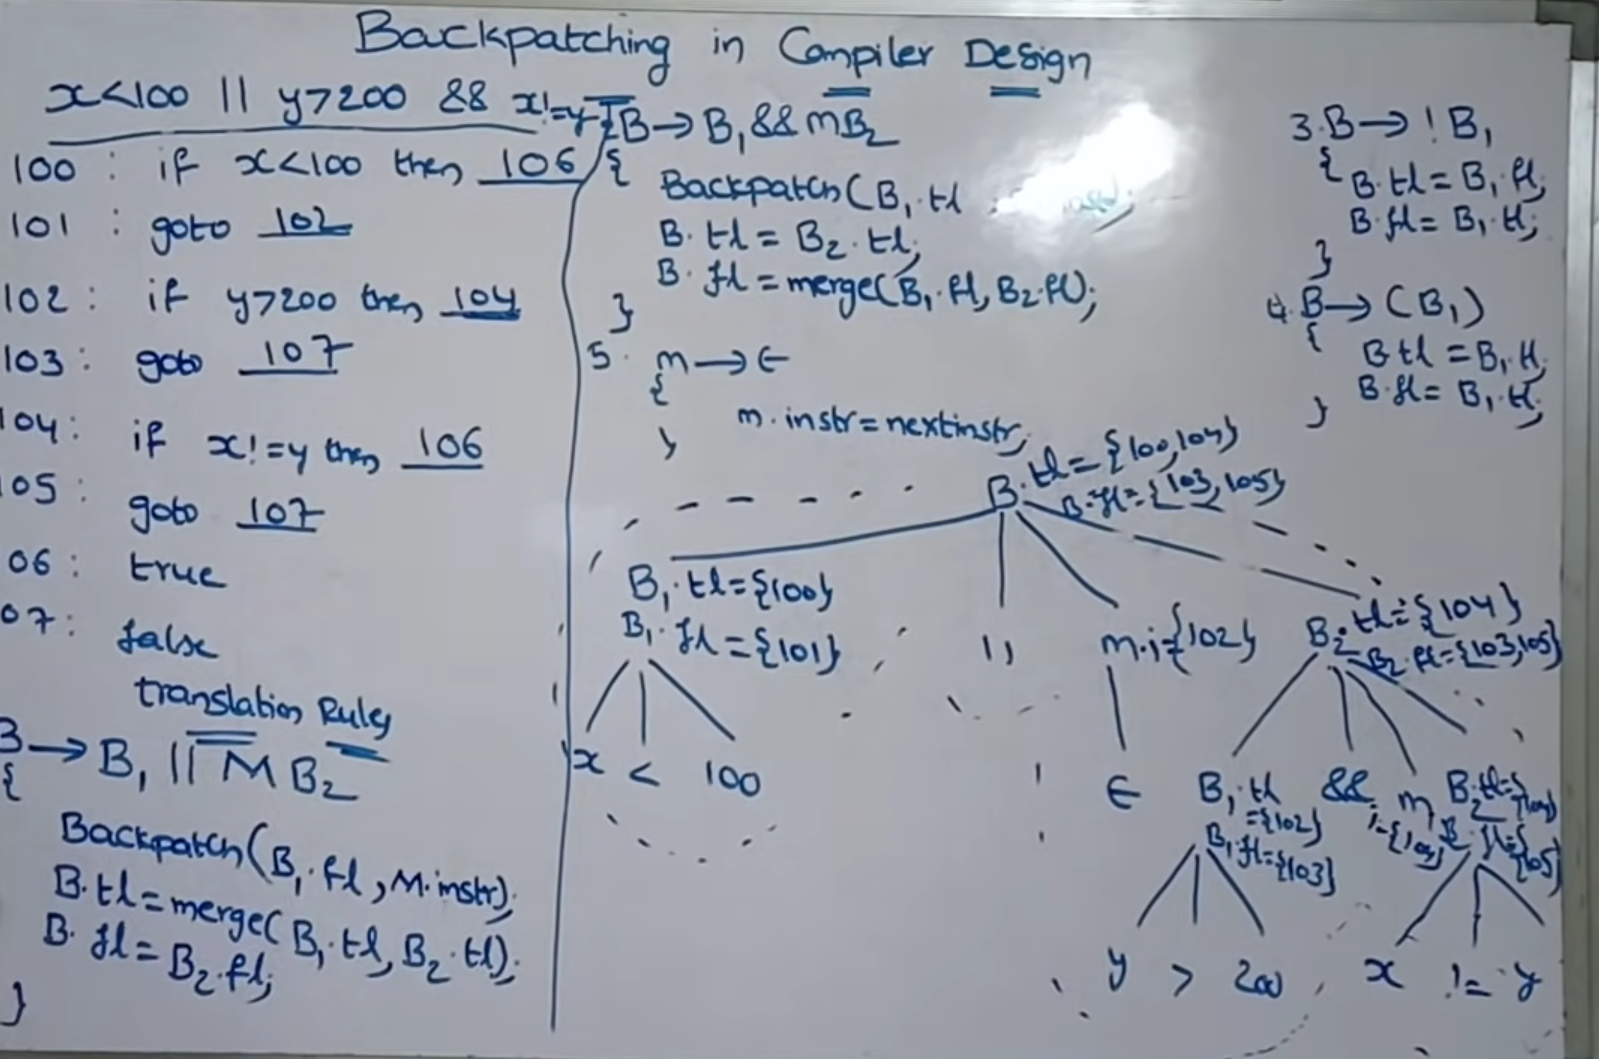 Backpatching in Compiler Design
x<100 || y>200 && x!=y
100 : if x<100 then 106
101 : goto 102
102 : if y>200 then 104
103 : goto 107
104 : if x!=y then 106
105 : goto 107
06 : true
07 : false
translation Rules
B→ B₁ || M B₂
{
Backpatch(B₁.fl, M.instr);
B.tl = merge(B₁.tl, B₂.tl);
B.fl = B₂.fl;
}
B→ B₁ && m B₂
{
Backpatch(B₁.tl
B.tl = B₂.tl;
B.fl = merge(B₁.fl, B₂.fl);
}
5. m → ∈
{
m.instr = nextinstr;
}
3. B→ ! B₁
{
B.tl = B₁.fl;
B.fl = B₁.tl;
}
4. B→ (B₁)
{
B.tl = B₁.tl;
B.fl = B₁.tl;
}
B.tl = {100,104}
B.fl = {103,105}
B₁.tl = {100}
B₁.fl = {101}
||
m.i={102}
B₂.tl = {104}
B₂.fl = {103,105}
x < 100
∈
B₁.tl = {102}
B₁.fl = {103}
&&
m
B₂.tl=
fl={105}
y > 200
x != y